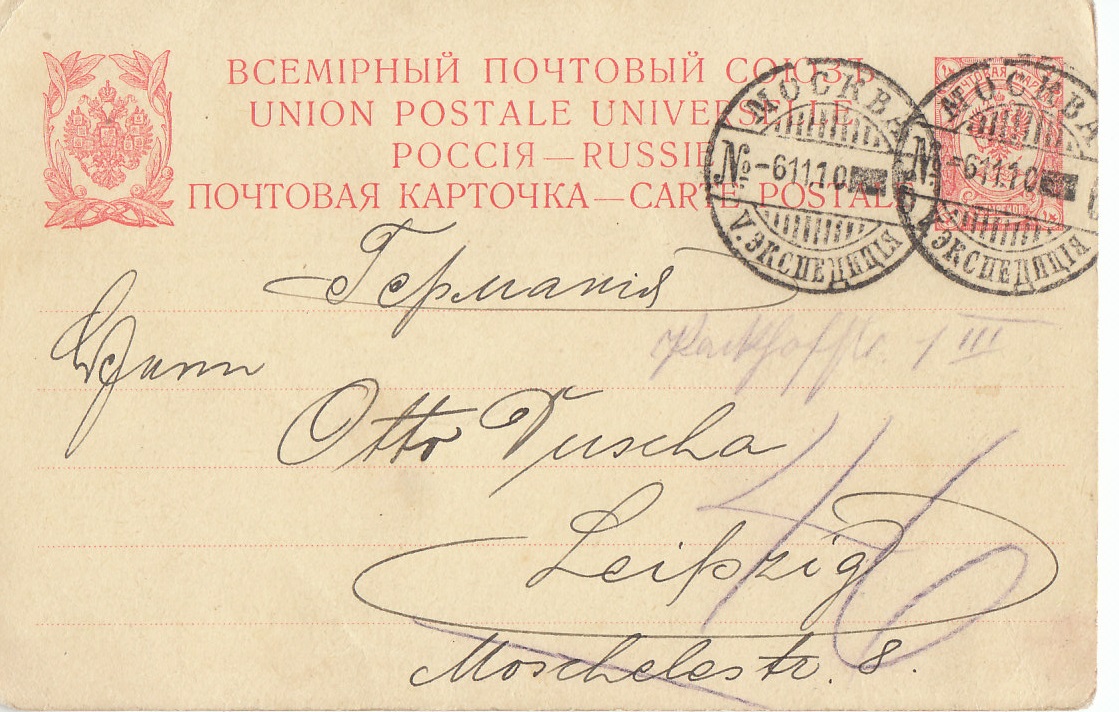 ВСЕМІРНЫЙ ПОЧТОВЫЙ СОЮЗЪ
UNION POSTALE UNIVERSELLE
РОССІЯ—RUSSIE
ПОЧТОВАЯ КАРТОЧКА—CARTE POSTALE
МОСКВА
№ -6 11 10
V. ЭКСПЕДИЦІЯ
МОСКВА
№ -6 11 10
V. ЭКСПЕДИЦІЯ
Германія
1 III
Herrn
Otto Duscha
Leipzig
Moschelesstr. 8.